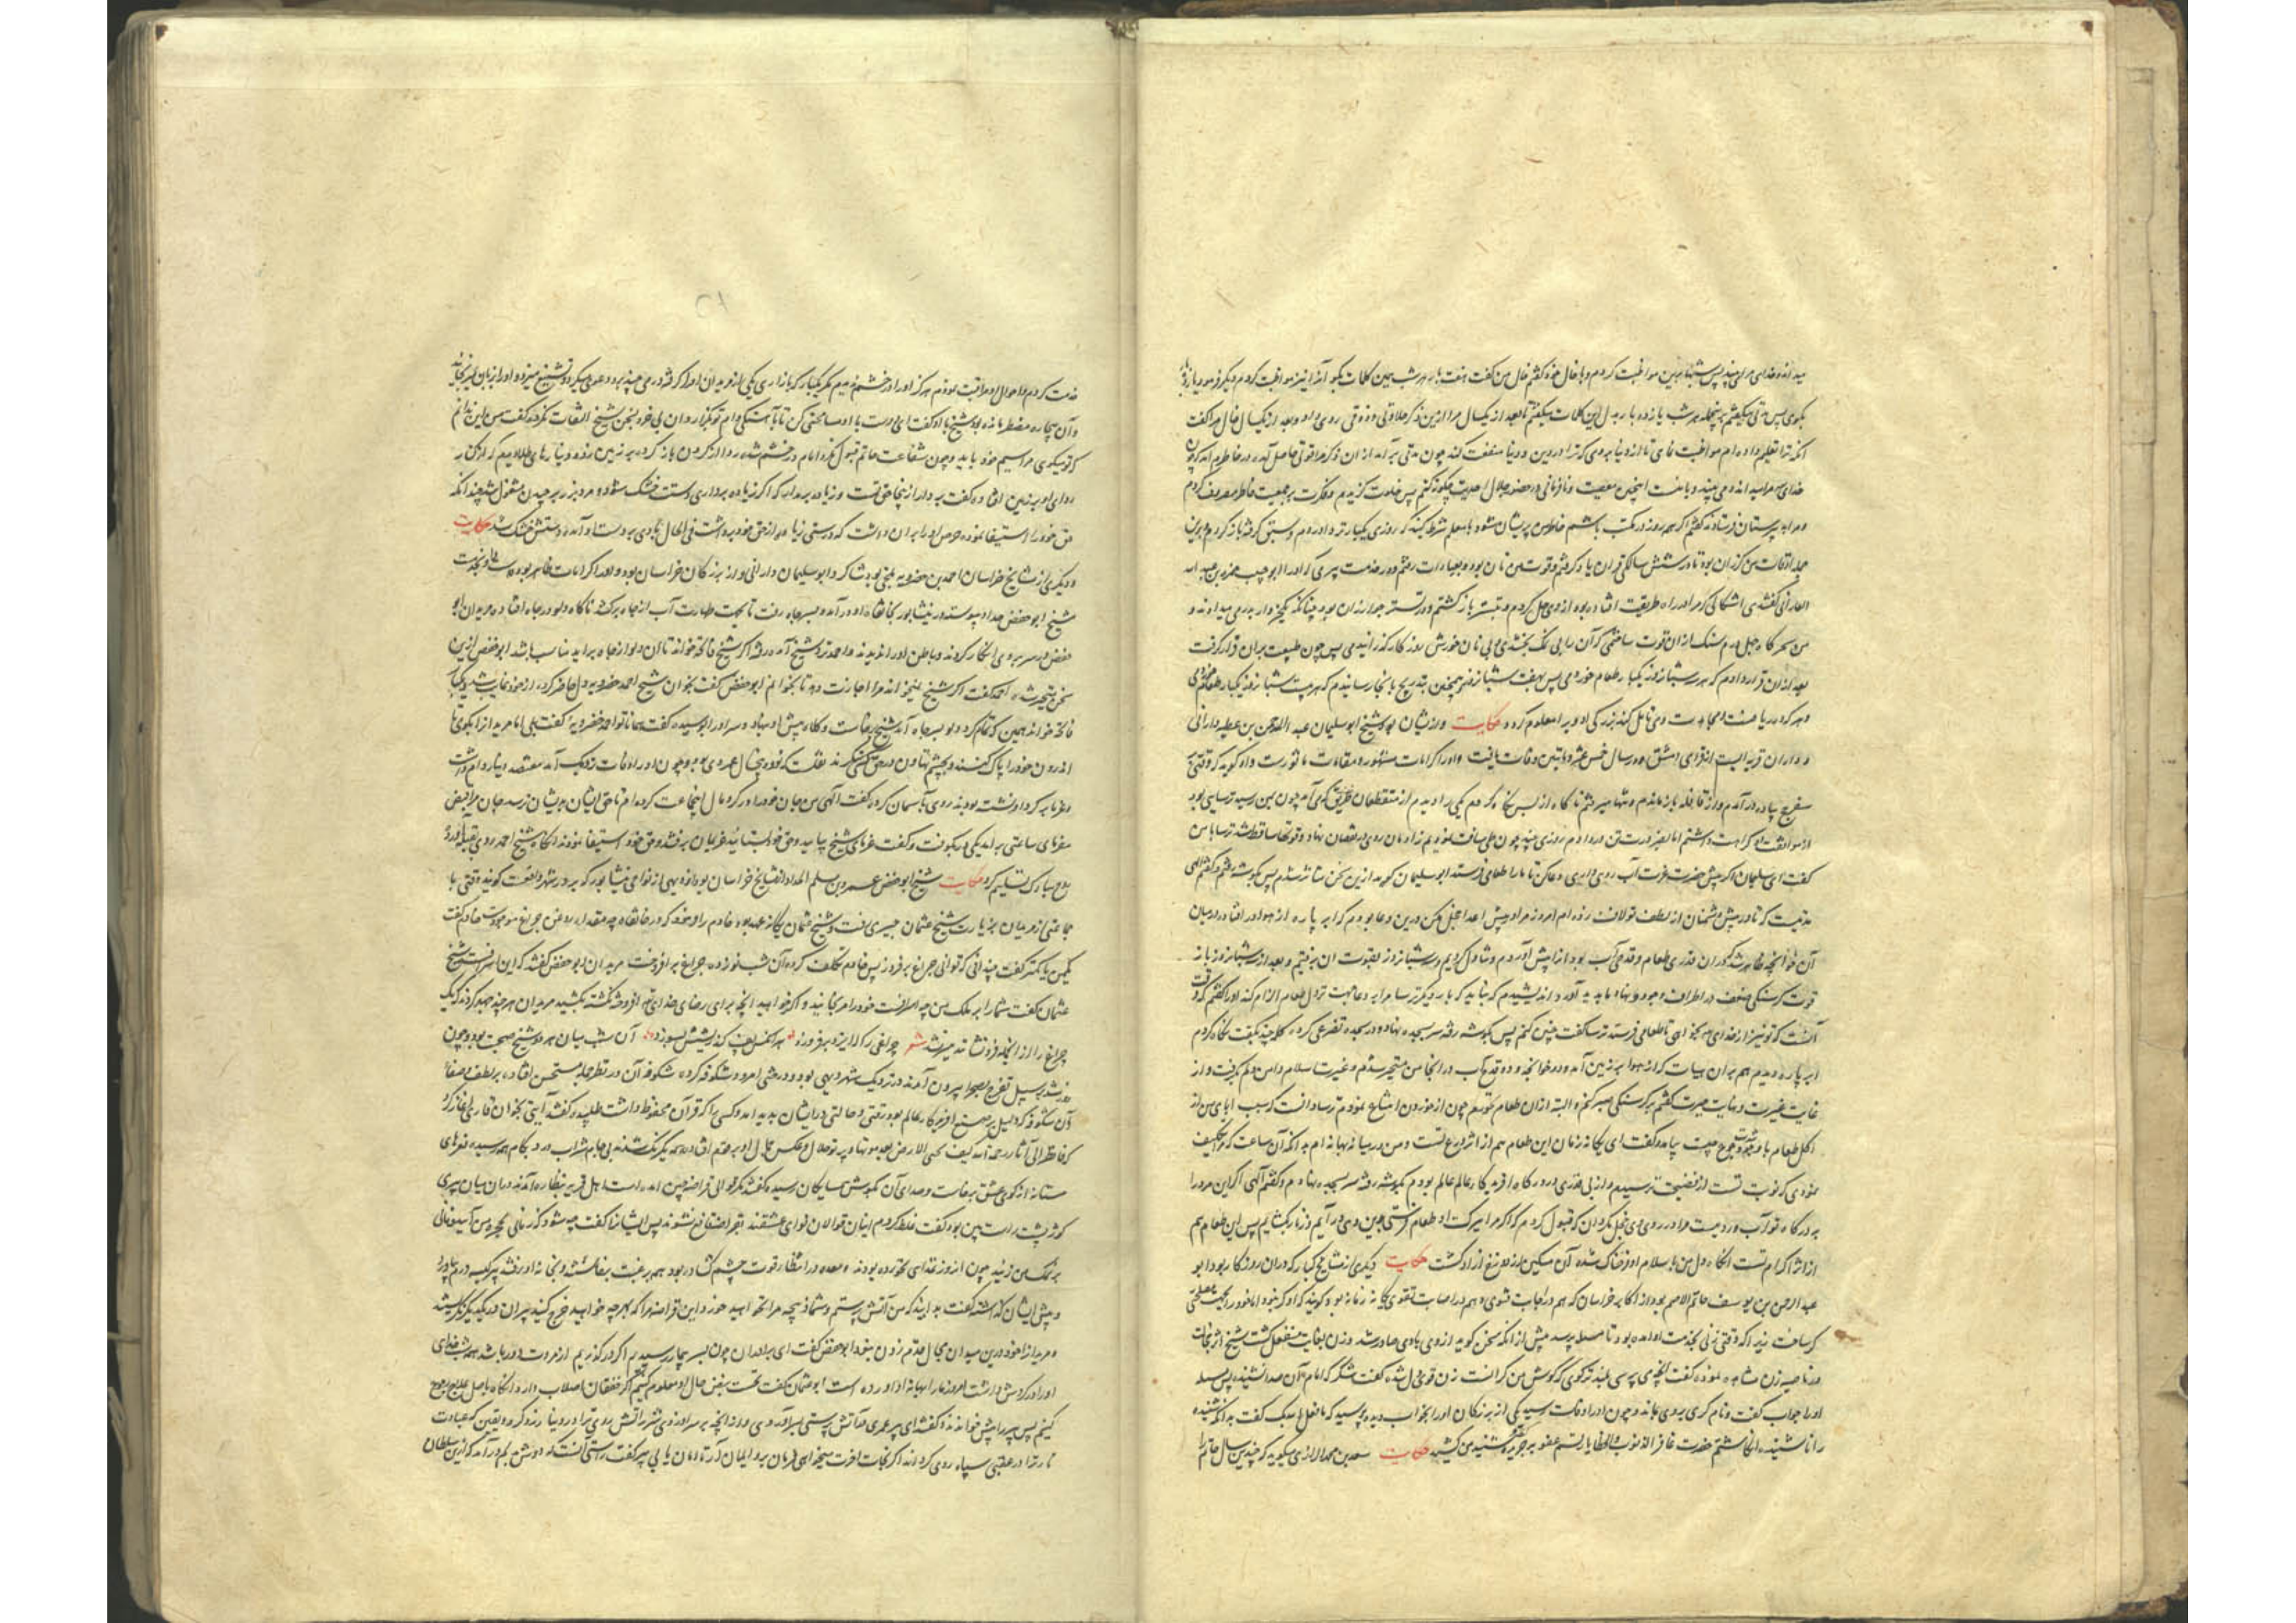 میداند و خدای مرا می‌بیند پس شبها برین مواظبت کردم و با خال خود گفتم خال من گفت هفت بار هر شب همین کلمات بگو آنرا نیز مواظبت کردم دیگر فرمود یازده بار
بگوی پس مدتی میگفتم هر شب یازده بار بدل این کلمات میگفتم تا بعد از یکسال مرا ازین ذکر حلاوتی و ذوقی روی داد و بعد از یکسال خال مرا گفت
آنکه ترا تعلیم داده‌ام مواظبت نمای تا از دنیا بروی که ترا در دین و دنیا منفعت کند چون مدتی بر آمد از آن ذکر مرا قوتی حاصل آمد در خاطرم آمد که چون
خدای مرا میداند و می‌بیند و با منست اینچنین معصیت و نافرمانی در حضور جلال احدیت چگونه کنم پس خلوت گزیدم و فکرت بر جمعیت خاطر مصروف کردم
و مرا بدبیرستان فرستادند گفتم اگر همه روز در مکتب باشم خاطر من پریشان شود با معلم شرط کنید که روزی یکبار تردد آورم و سبقی گرفته باز گردم و برین
جمله اوقات من گزران بود تا در شش سالگی قرآن یاد گرفتم و قوت من نان بود و بعبادات رفتم و در خدمت پیری که او را ابو حبیب حمزه بن عبد الله
العبادانی گفتندی اشکالی که مرا در راه طریقت افتاده بود از وی حل کردم و بتستر باز گشتم و در تستر جو ارزان بود چنانکه یک خروار بدرمی میدادند و
من سحرگاه چهل درم سنگ از آن قوت ساختمی که آن را بی نمک بختندی و بی نان خورش روزگار گذرانیدمی پس چون طبیعت بر آن قرار گرفت
بعد از آن قرار دادم که هر سه شبانروز یکبار طعام خوردمی پس بهفت شبانروز همچنین بتدریج بانجا رسانیدم که هر بیست شبانروز یکبار طعام خوردمی
و هر که در ریاضت و مجاهدت وی تامل کند بزرگی او ویرا معلوم گردد حکایت و از ایشان بود شیخ ابو سلیمان عبد الرحمن بن عطیه دارانی
و داران قریه ایست از قرای دمشق و در سال خمس عشر و مائتین وفات یافت و او را کرامات مشهور و مقامات ماثورست و او گوید که وقتی
سفر حج پیاده در آمدم و از قافله باز ماندم و تنها میرفتم ناگاه از پس نگاه کردم یکی را دیدم از منقطعان طریق که می‌آمد چون بمن رسید ترسایی بود
از موافقت او کراهت داشتم اما بضرورت تن در دادم روزی چند چون طی مسافت نمودیم زاد ما روی در نقصان نهاد و قوتها ساقط شد ترسا با من
گفت ای سلیمان اگر پیش حضرت عزت آب روی داری دعا کن تا ما را طعامی فرستد ابو سلیمان گوید ازین سخن متاثر شدم پس بگوشه رفتم و گفتم الهی
مدتیست که تا در پیش دشمنان از لطف تو لاف زده‌ام امروز مرا در پیش اعدا خجل مکن درین دعا بودم که ابر پاره از هوا در افتاد در میان
آن خوانچه ظاهر شد که در آن قدری طعام و قدحی آب بود آنرا پیش آوردم و تناول کردیم و سه شبانروز بقوت آن برفتیم و بعد از سه شبانروز باز
قوت گرسنگی ضعف در اطراف وجود بنهاد ما پدید آورد و اندیشیدم که نباید که بار دیگر ترسا مرا بدعا بجهت نزول طعام الزام کند او را گفتم که وقت
آنست که تو نیز از خدای بخواهی تا طعامی فرستد ترسا گفت چنین کنم پس بگوشه رفته سر بسجده بنهاد و در سجده تضرعی کرد و کلمه چند بگفت نگاه کردم
ابر پاره دیدم هم بر آن هیات که از هوا بر زمین آمد و در خوانچه دو قدح آب در آنجا من متحیر شدم و غیرت سلام دامن دلم بگرفت و از
غایت غیرت و نهایت حیرت گفتم بر گرسنگی صبر کنم و البته از آن طعام نخورم چون از خوردن امتناع نمودم ترسا دانست که سبب ابای من از
اکل طعام با وجود شدت جوع چیست پیامد و گفت ای یگانه زمان این طعام هم از اثر ورع تست و من در میانه بهانه‌ام بدانکه آن ساعت که مرا تکلیف
نمودی که نوبت تست از فضیحت ترسیدم و از بی قدری در درگاه آفریدگار عالم عالم بودم بگوشه رفته سر بسجده بنهادم و گفتم الهی اگر این مرد را
بر درگاه تو آب و رویست مرا در روی وی خجل مگردان که قبول کردم که اگر مرا ببرکت او طعام فرستی بدین وی در آیم و زنار بگشایم پس این طعام هم
از اثر اکرام تست آنگاه دل من باسلام او فرحناک شد آن مسکین از دوزخ آزاد گشت حکایت دیگری از مشایخ کبار که در آن روزگار بود ابو
عبد الرحمن بن یوسف حاتم الاصم بود از اکابر خراسان که هم در اجابت فتوی و هم در اصابت تقوی یگانه زمانه بود و گویند که او کر نبود اما خود را بجهت مصلحتی
کر ساخت زیرا که وقتی زنی بخدمت او آمده بود تا مسئله پرسد پیش از آنکه سخن گوید از وی بادی صادر شد و زن بغایت منفعل گشت شیخ اثر خجالت
در ناصیه زن مشاهده نموده گفت آنچه می پرسی بلندتر گوی که گوش من گرانست زن قوی دل شده گفت شکر که امام آن صدا نشنید پس مسئله
او را جواب گفت و نام کری بر وی بماند و چون او را وفات رسید یکی از بزرگان او را بخواب دیده پرسید که ما فعل الله بک گفت بدانکه شنیده
را ناشنیده انگاشتم حضرت غافر الذنوب و الخطایا رقم عفو بر جریده شنیده من کشید حکایت سعد بن محمد الرازی میگوید که چندین سال حاتم را
خدمت کردم و احوال او مراقبت نمودم هرگز او را در خشم ندیدم مگر یکبار که بازاری یکی از مریدان او را گرفته درمی چند برو دعوی میکرد و تشنیع میزد و او را بزبان میرنجانید
و آن بیچاره مضطر مانده بود شیخ با او گفت ای دوست با او مسامحتی کن تا بآهستگی وام تو بگزارد آن بی خرد بسخن شیخ التفات نکرد و گفت من این ندانم
که تو میگوی مرا سیم خود باید و چون شفاعت حاتم قبول نکرد امام در خشم شده ردا از گردن باز کرده بر زمین زد و دینارهای طلا دیدم که از کنار
ردای او بر زمین افتاد و گفت بردار از اینجا حق تست و زیاده برمدار که اگر زیاده برداری دستت خشک شود و مرد بزر برچیدن مشغول شد چندانکه
حق خود را استیفا نمود و حرص او را بر آن داشت که درستی زیاده از حق خود برداشت فی الحال بادی بر دست او آمده دستش خشک شد حکایت
و دیگری از مشایخ خراسان احمد بن خضرویه بلخی بود شاگرد ابو سلیمان دارانی و از بزرگان خراسان بود و او را کرامات ظاهر بوده است و بخدمت
شیخ ابو حفص حداد پیوسته در نیشابور بخانقاه او در آمد و بسر چاه رفت تا بجهت طهارت آب از چاه برکشد ناگاه دلو در چاه افتاد و مریدان ابو
حفص در سر بر وی انکار کردند و باطن او را ندیدند و احمد نزد شیخ آمد و گفت اگر شیخ فاتحه خواند تا آن دلو از چاه بر آید مناسب باشد ابو حفص ازین
سخن متحیر شد احمد گفت اگر شیخ نمیخواند مرا اجازت دهد تا بخوانم ابو حفص گفت بخوان شیخ احمد خضرویه دل حاضر کرد و از خود غایب شد و یکبار
فاتحه خواند همین که تمام کرد دلو بسر چاه آمد شیخ برخاست و کلاه پیش او نهاد و سر او را بوسید و گفت همانا تو احمد خضرویه‌ گفت بلی اما مریدان را بگوی تا
اندرون خود را پاک کنند و بچشم تهاون در من ننگرند نقلست که نود و پنج سال عمر وی بود و چون او را وفات نزدیک آمد هفتصد دینار وام داشت
و غرما بر گرد او نشسته بودند روی بآسمان کرده گفت الهی من جان خود را در گرو مال اینجماعت کرده‌ام تا حق ایشان بدیشان نرسد جان مرا قبض
مفرمای ساعتی بر آمد یکی در بکوفت و گفت غرمای شیخ بیایید و حق خود بستانید غریمان برفتند و حق خود استیفا نمودند آنگاه شیخ احمد روی بقبله آورد و
روح مبارک تسلیم کرد حکایت شیخ ابو حفص عمرو بن سلم الحداد از مشایخ خراسان بود از دیهی از نواحی نیشابور که بر در شهر واقعست گویند وقتی با
جماعتی از مریدان بزیارت شیخ عثمان حیری رفت و شیخ عثمان یگانه عهد بود خادم را و نمود که در خانقاه چه مقدار روغن چراغ موجودست خادم گفت
یکمن یا کمتر گفت چندانی که توانی چراغ بر فروز پس خادم تکلف کرده آن شب نوزده چراغ بر افروخت مریدان ابو حفص گفتند که این اسرافست شیخ
عثمان گفت شما را بر ملک من چه اسرافست خود را مرنجانید و اگر خواهید آنچه برای رضای خدای تعالی افروخته گشته بکشید مریدان هر چند جهد کردند که یک
چراغ را از آنجمله فرو نشانند میسر نشد شعر چراغی را که ایزد بر فروزد هر آنکس پف کند ریشش بسوزد آن شب میان هر دو شیخ صحبت بود و چون
روز شد بر سبیل تفرج بصحرا بیرون آمدند در نزدیک شهر دیهی بود و درختی امرود شکوفه کرده شکوفه آن در نظر جمله مستحسن افتاد بر لطف و صفای
آن شکوفه که دلیل بر صنع آفریدگار عالم بود رقتی و حالتی در ایشان پدید آمد و کسی را که قرآن محفوظ داشت طلبیده گفتند آیتی بخوان قاری آغاز کرد
که فانظر الی آثار رحمة الله کیف یحیی الارض بعد موتها و پرتو جلال و عکس جمال او بر همه افتاده همه یکرنگ شدند بی جام شراب درد بکام همه رسیده نعرهای
مستانه از کوی عشق برخاست و صدای آن بگوش همسایگان رسیده گفتند مگر قوالی قراضه چین آمده است اهل قریه بنظاره آمدند در آن میان پیری
کوژ پشت راست بین بود گفت غلط کردم اینان قوالان نوای عشقند بقراضه قانع نشوند پس ایشانرا گفت چه شود که زمانی بحجره من آیید و نانی
بر نمک من زنید چون از روز غذای نخورده بودند و معده در انتظار قوت چشم گشاد بود هم برغبت برخاستند و بخانه او رفتند پیر یک درم بیاورد
و پیش ایشان گذاشته گفت بدانید که من آتش پرستم و شما ذبیحه مرا نخواهید خورد این قراضه را که بهر چه خواهید خرج کنید پیران در یکدیگر نگریستند
و مریدان را خود درین میدان مجال قدم زدن نبود ابو حفص گفت ای برادران چون بسر بیمار رسیدیم اگر در گذریم از مروت دور باشد همه شب خدای
او را در گردش داشت امروز ما را بدو باز آورده است ابو عثمان گفت نخست نبض حال او معلوم کنیم اگر خفقان اصلاب دارد آنگاه باصل علاج رجوع
کنیم پس پیر را پیش خواندند و گفتند ای پیر عمری در آتش پرستی بسر آوردی و از آنچه بر سر او زدی شرر آتش روی ترا در دنیا زرد کرد و یقین که عبادت
نار ترا در عقبی سیاه روی گرداند اگر نجات آخرت میخواهی فرمان بر و ایمان آر تا امان یابی پیر گفت راستی آنست که دوش بدلم در آمد که از این سلطان